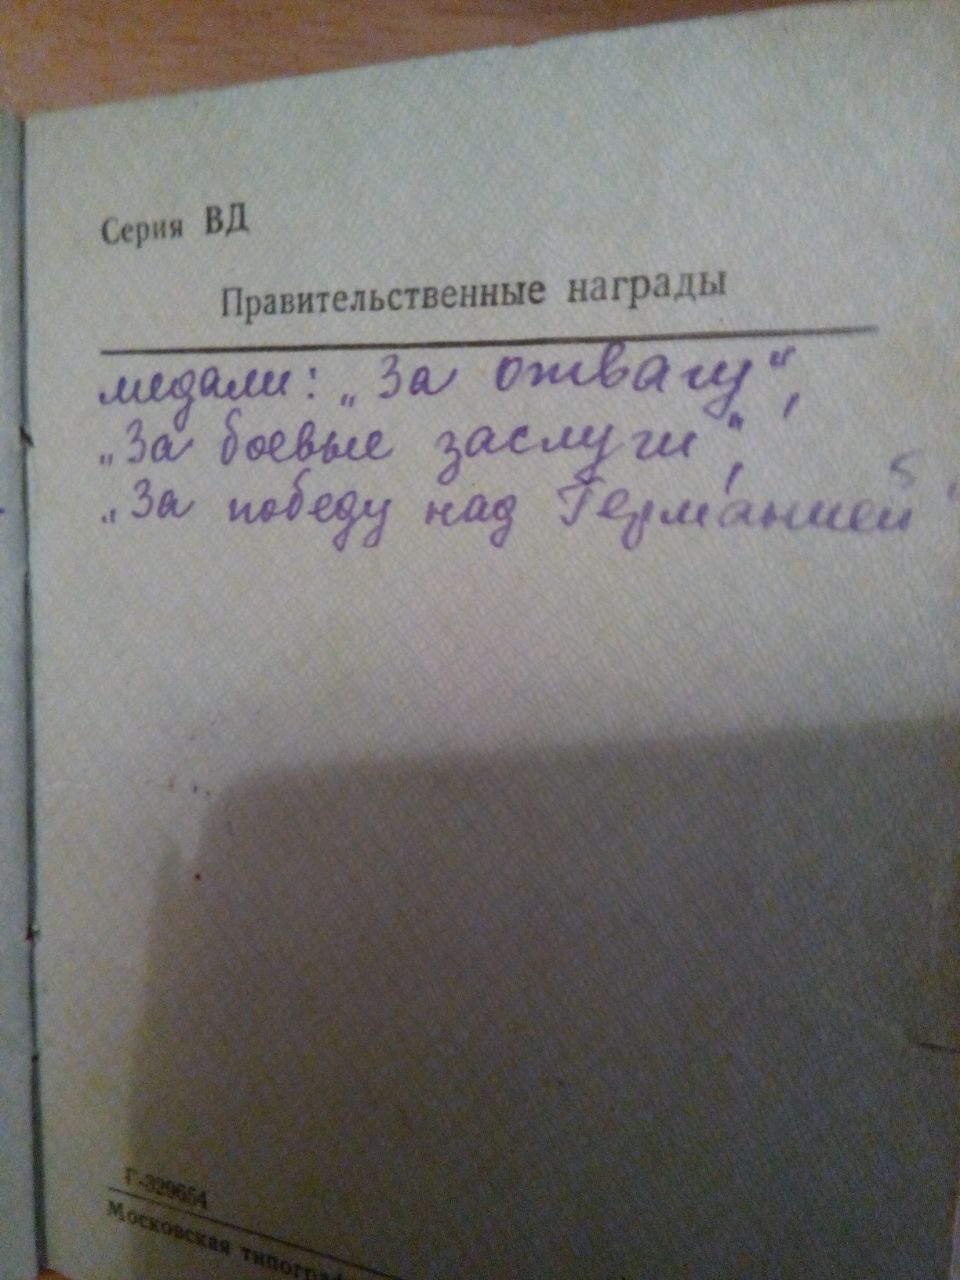 Серия ВД
Правительственные награды
медали: „За отвагу“,
„За боевые заслуги“,
„За победу над Германией“
Г-329654
Московская